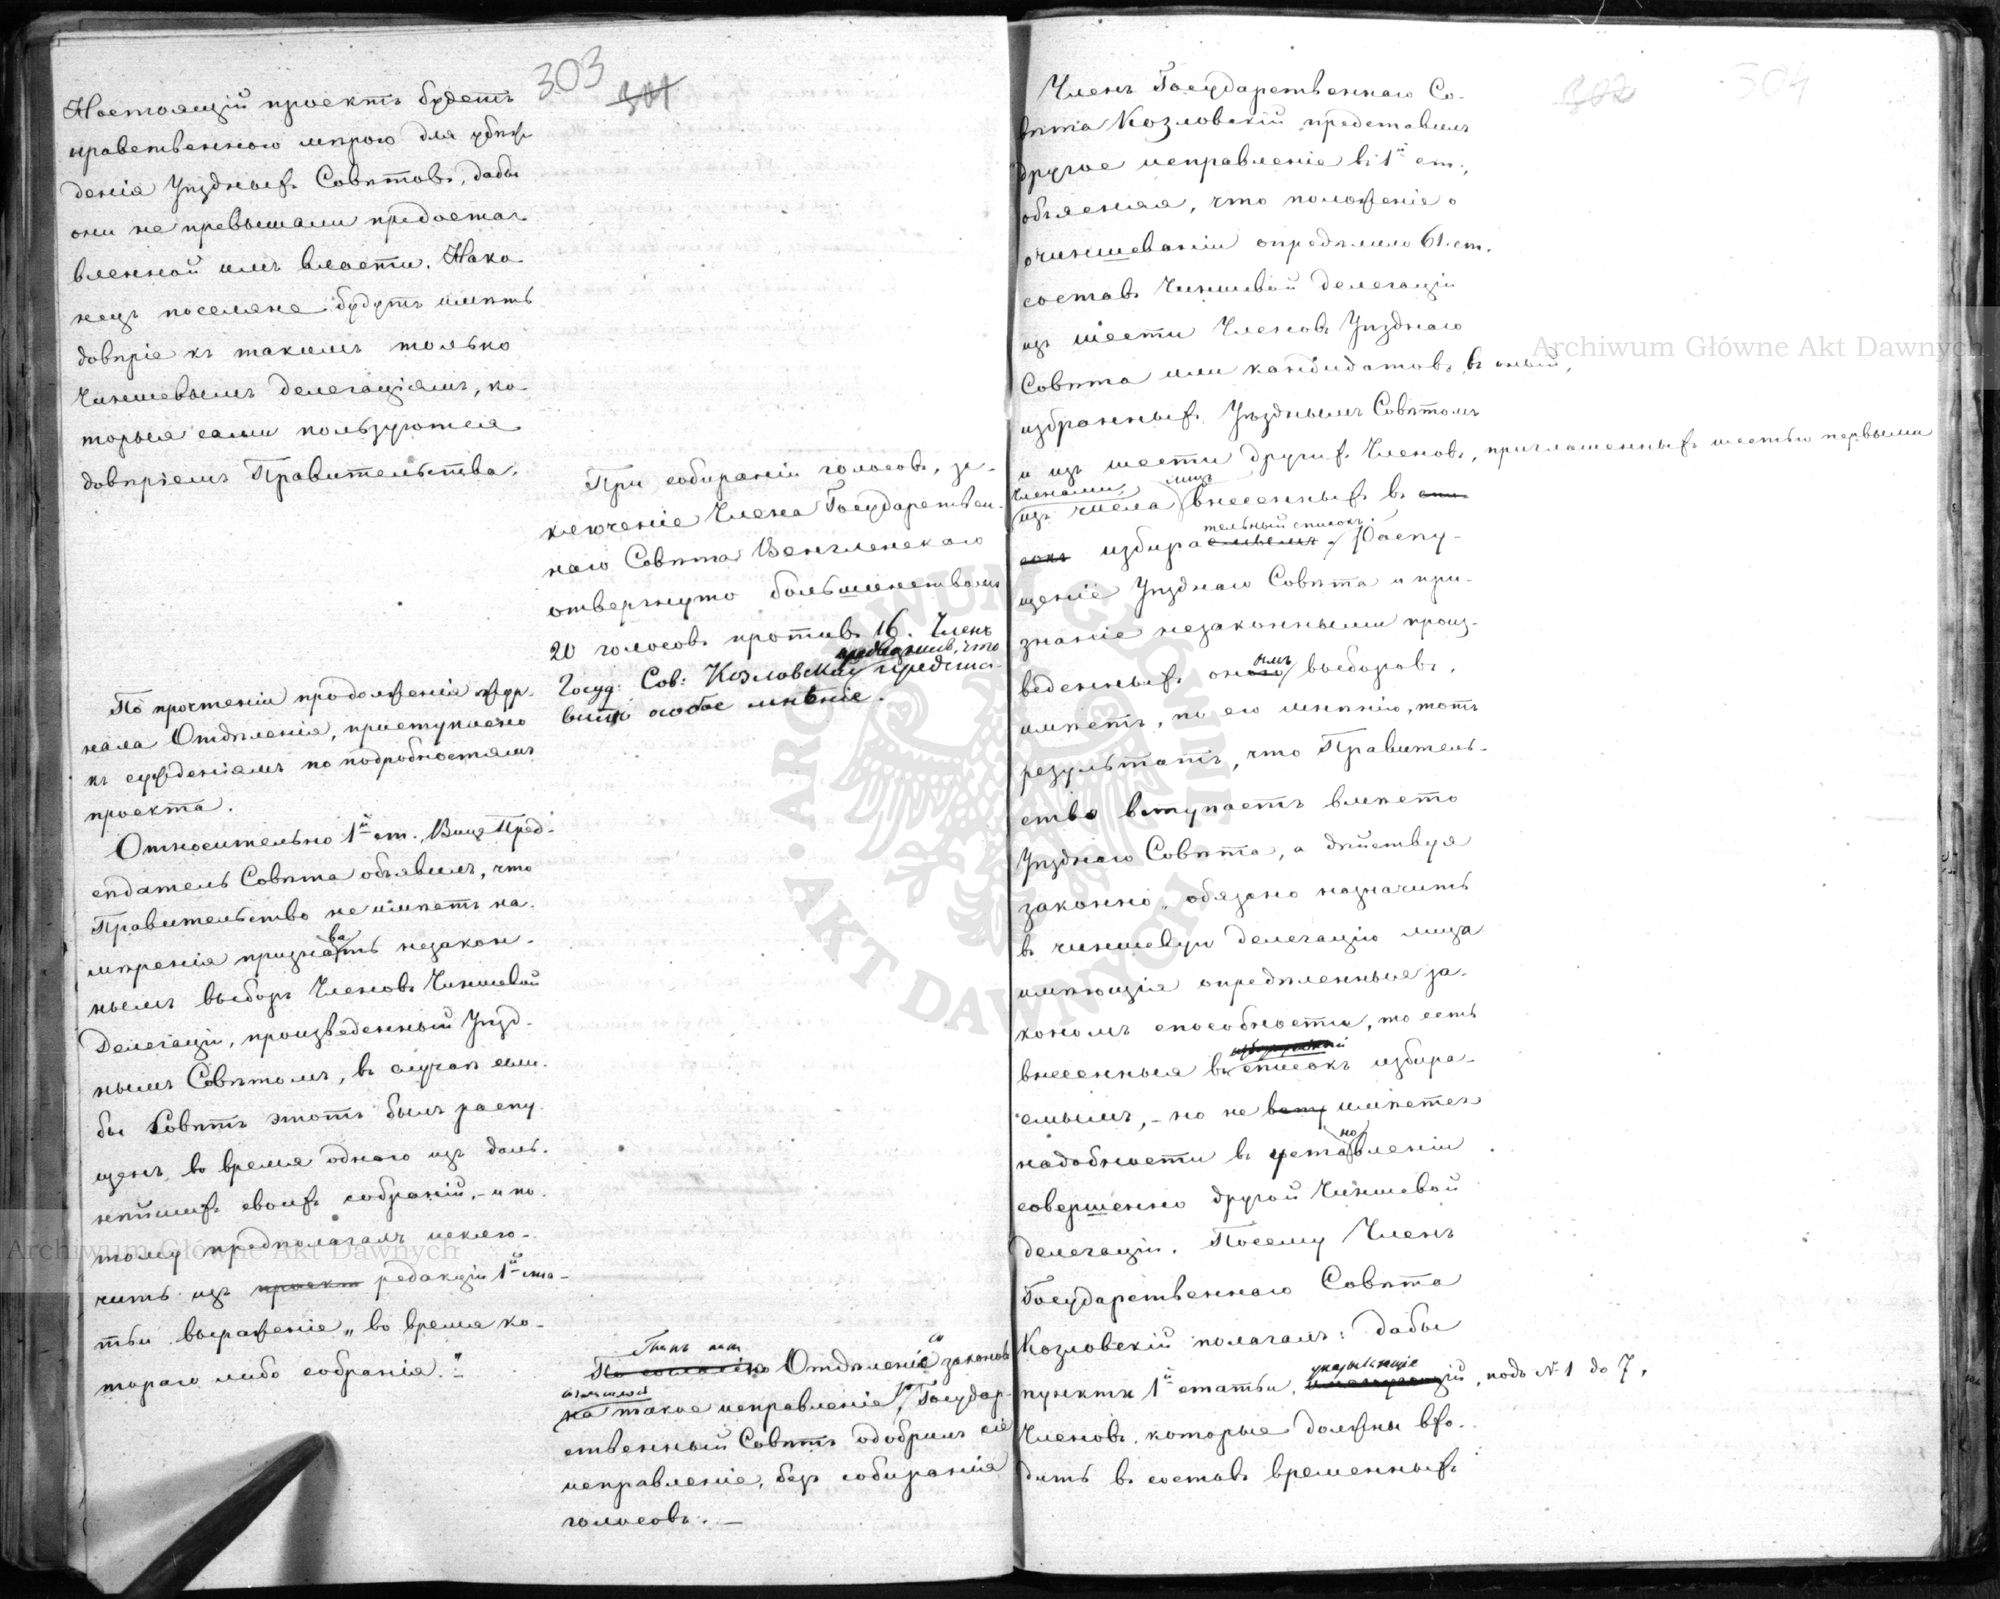 303 301
Настоящій проектъ будетъ
нравственною мѣрою для убѣж-
денія Уѣздныхъ Совѣтовъ, дабы
они не превышали предостав-
вленной имъ власти. Нако-
нецъ поселяне будутъ имѣть
довѣріе къ такимъ только
Чиншевымъ делегаціямъ, ко-
торыя сами пользуются
довѣріемъ Правительства.
По прочтеніи продолженія жур-
нала Отдѣленія, приступлено
къ сужденіямъ по подробностямъ
проекта.
Относительно 1й ст., Вице Пред-
сѣдатель Совѣта объявилъ, что
Правительство не имѣетъ на-
ва
мѣренія признать незакон-
нымъ выборъ Членовъ Чиншевой
Делегаціи, произведенный Уѣзд-
нымъ Совѣтомъ, въ случаѣ если-
бы Совѣтъ этотъ былъ распу-
щенъ во время одного изъ даль-
нѣйшихъ своихъ собраній,- и по-
тому предполагалъ исклю-
чить изъ проект редакціи 1й ста-
тьи выраженіе „во время ко-
тораго либо собранія."
При собираніи голосовъ, за-
ключеніе Члена Государствен-
наго Совѣта Венгленскаго
отвергнуто большинствомъ
20 голосовъ противъ 16. Членъ
что
Госуд: Сов: Козловскій предста-
витъ особое мнѣніе.
Отдѣленіе законовъ
на такое исправленіе, Государ-
ственный Совѣтъ одобрилъ сіе
исправленіе, безъ собиранія
голосовъ. —
302 304
Членъ Государственнаго Со-
вѣта Козловскій представилъ
другое исправленіе въ 1й ст.,
объясняя, что положеніе о
очиншеваніи опредѣлило 61. ст.
составъ Чиншевой делегаціи
изъ шести Членовъ Уѣзднаго
Совѣта или кандидатовъ въ оный,
избранныхъ Уѣзднымъ Совѣтомъ
и изъ шести другихъ Членовъ, приглашенныхъ шестью первыми
Членами, лицъ
изъ числа внесенныхъ въ спи-
тельный списокъ.
сокъ избираемыхъ. Распу-
щеніе Уѣзднаго Совѣта и при-
знаніе незаконными произ-
ымъ
веденныхъ оною выборовъ,
имѣетъ, по его мнѣнію, тотъ
результатъ, что Правитель-
ство вступаетъ вмѣсто
Уѣзднаго Совѣта, а дѣйствуя
законно, обязано назначить
въ чиншевую делегацію лица
имѣющія опредѣленныя за-
кономъ способности, то есть
внесенныя въ списокъ избира-
емымъ,- но не имѣется
но
надобности въ уставленіи
совершенно другой Чиншевой
делегаціи. Посему Членъ
Государственнаго Совѣта
Козловскій полагалъ: дабы
указывающіе
пункты 1й статьи, подъ № 1 до 7,
Членовъ, которые должны вхо-
дить въ составъ временныхъ
Archiwum Główne Akt Dawnych
Archiwum Główne Akt Dawnych
ARCHIWUM GŁÓWNE · AKT DAWNYCH ·